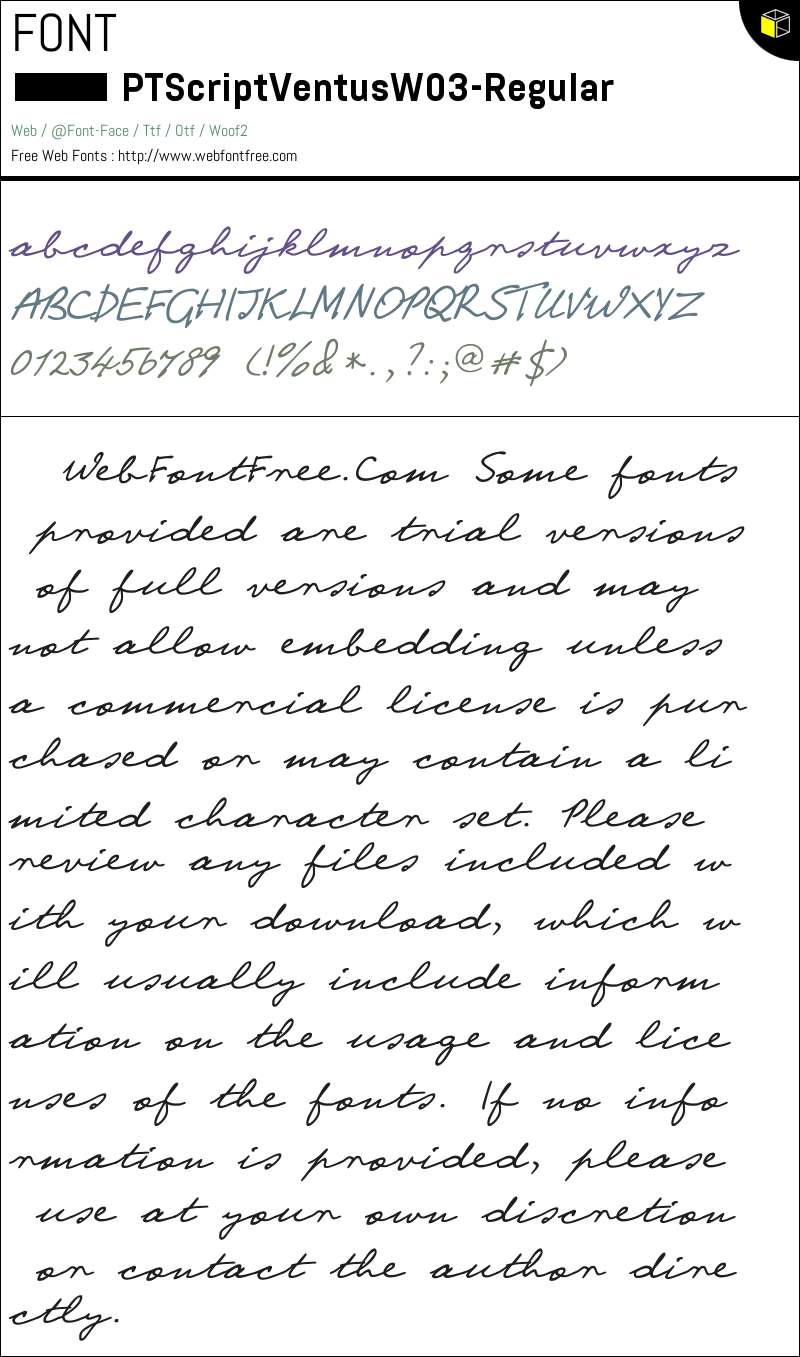 FONT
PTScriptVentusW03-Regular
Web / @Font-Face / Ttf / Otf / Woof2
Free Web Fonts : http://www.webfontfree.com
abcdefghijklmnopqrstuvwxyz
ABCDEFGHIJKLMNOPQRSTUVWXYZ
0123456789 (!%&*.,?:;@#$)
WebFontFree.Com Some fonts
provided are trial versions
of full versions and may
not allow embedding unless
a commercial license is pur
chased or may contain a li
mited character set. Please
review any files included w
ith your download, which w
ill usually include inform
ation on the usage and lice
nses of the fonts. If no info
rmation is provided, please
use at your own discretion
or contact the author dire
ctly.